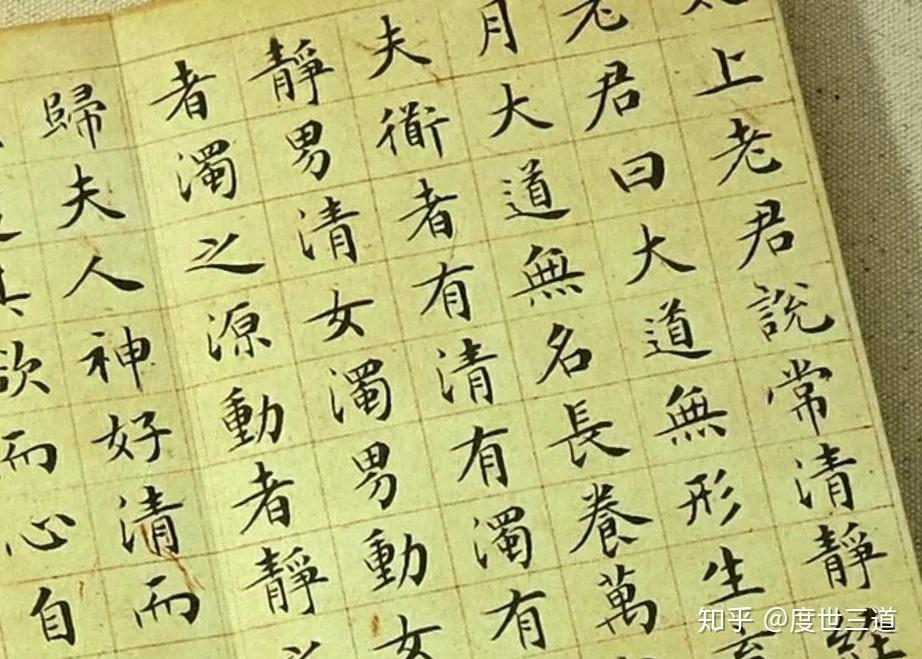 太上老君說常清靜經
老君曰大道無形生育
月大道無名長養萬
夫衜者有清有濁有
靜男清女濁男動女
者濁之源動者靜
歸夫人神好清而
欲而心自
知乎 @度世三道